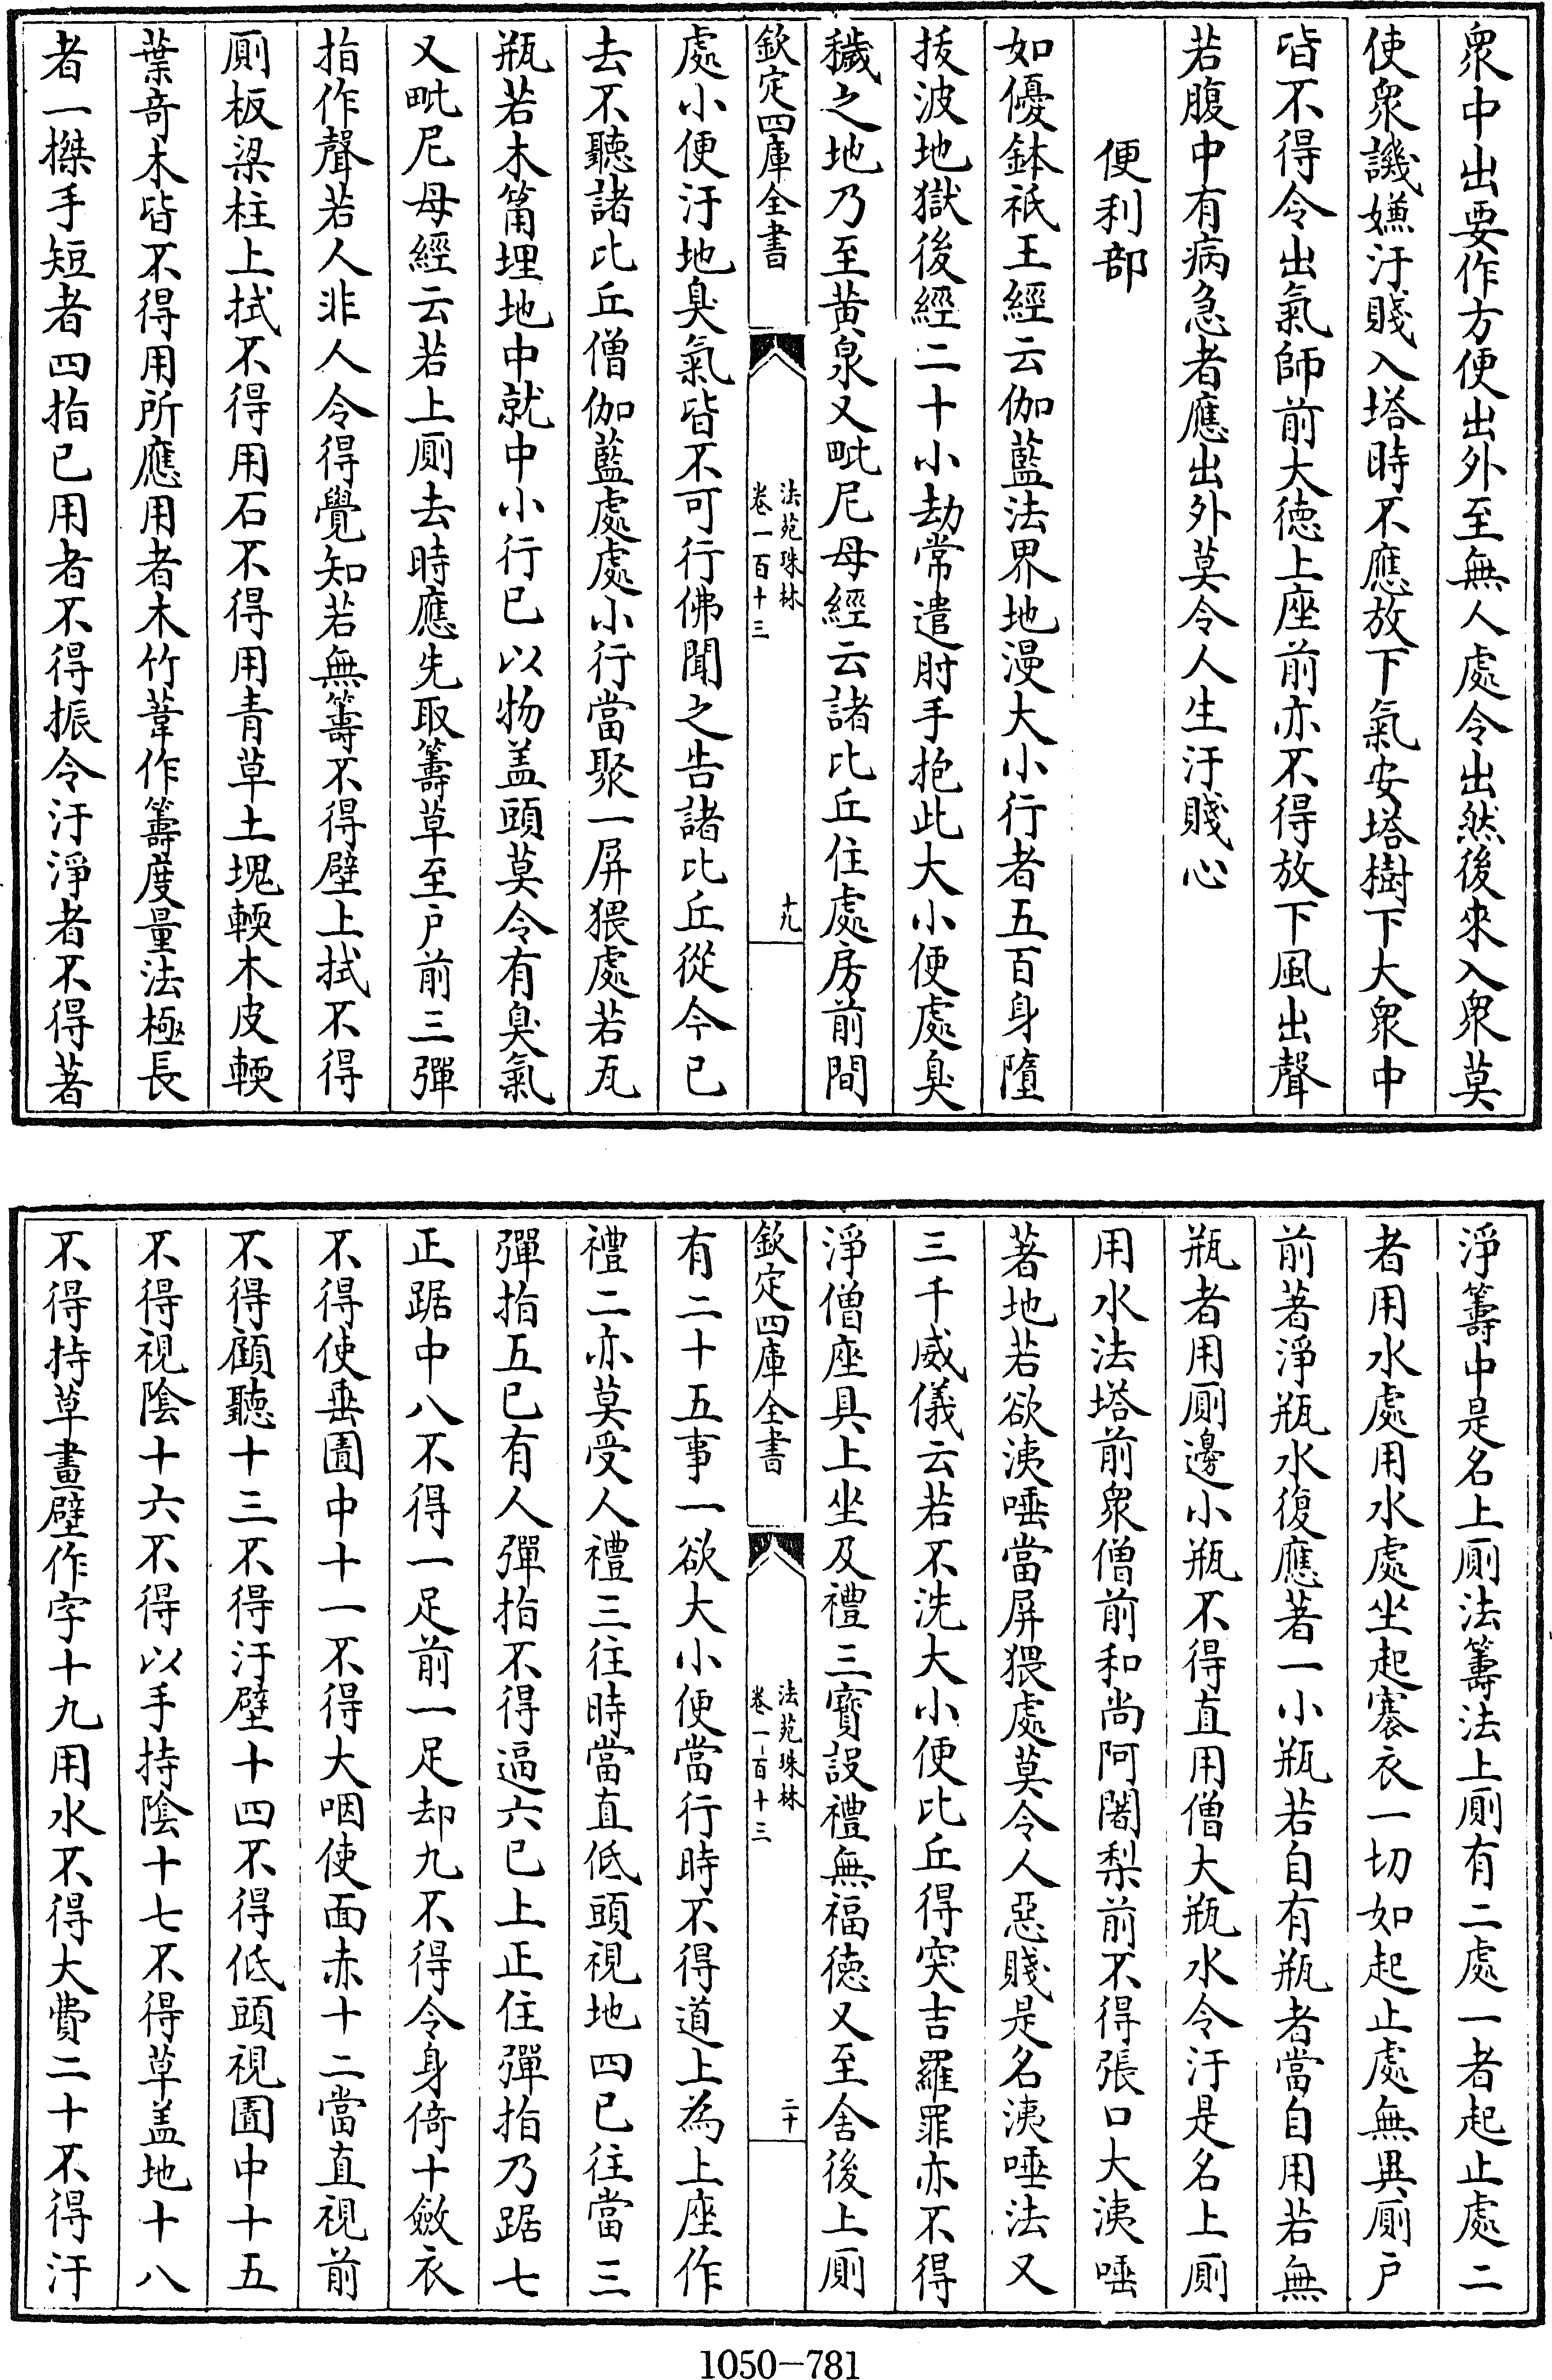 衆中出要作方便出外至無人處令出然後來入衆莫
使衆譏嫌汙賤入塔時不應放下氣安塔樹下大衆中
皆不得令出氣師前大徳上座前亦不得放下風出聲
若腹中有病急者應出外莫令人生汙賤心
便利部
如優鉢祇王經云伽藍法界地漫大小行者五百身墮
拔波地獄後經二十小劫常遣肘手抱此大小便處臭
穢之地乃至黄泉又毗尼母經云諸比丘住處房前間
欽定四庫全書
法苑珠林
卷一百十三
十九
處小便汙地臭氣皆不可行佛聞之告諸比丘從今已
去不聽諸比丘僧伽藍處處小行當聚一屏猥處若瓦
瓶若木筩埋地中就中小行已以物盖頭莫令有臭氣
又毗尼母經云若上厠去時應先取籌草至户前三彈
指作聲若人非人令得覺知若無籌不得壁上拭不得
厠板梁柱上拭不得用石不得用青草土塊輭木皮輭
葉竒木皆不得用所應用者木竹葦作籌度量法極長
者一搩手短者四指已用者不得振令汙淨者不得著
淨籌中是名上厠法籌法上厠有二處一者起止處二
者用水處用水處坐起褰衣一切如起止處無異厠户
前著淨瓶水復應著一小瓶若自有瓶者當自用若無
瓶者用厠邊小瓶不得直用僧大瓶水令汙是名上厠
用水法塔前衆僧前和尚阿闍梨前不得張口大洟唾
著地若欲洟唾當屏猥處莫令人惡賤是名洟唾法又
三千威儀云若不洗大小便比丘得突吉羅罪亦不得
淨僧座具上坐及禮三寳設禮無福徳又至舍後上厠
欽定四庫全書
法苑珠林
卷一百十三
二十
有二十五事一欲大小便當行時不得道上為上座作
禮二亦莫受人禮三往時當直低頭視地四已往當三
彈指五已有人彈指不得逼六已上正住彈指乃踞七
正踞中八不得一足前一足却九不得令身倚十斂衣
不得使垂圊中十一不得大咽使面赤十二當直視前
不得顧聽十三不得汙壁十四不得低頭視圊中十五
不得視陰十六不得以手持陰十七不得草盖地十八
不得持草畫壁作字十九用水不得大費二十不得汙
1050-781